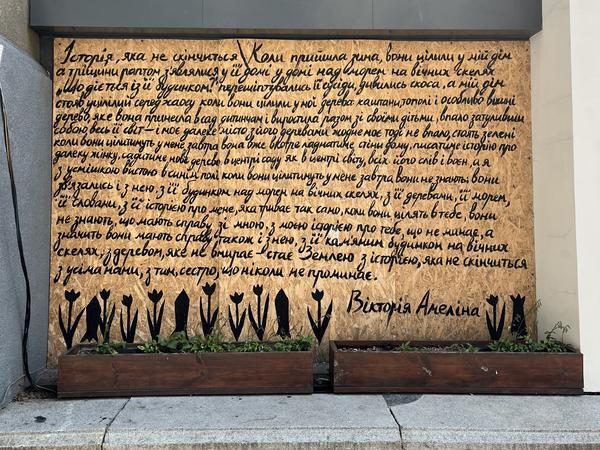 Історія, яка не скінчиться \ Коли прийшла зима, вони цілили у мій дім
а тріщини раптом з'явилися у її домі у домі над морем на вічних скелях
„Що діється із її будинком? перешіптувались її сусіди, дивились скоса, а мій дім
стояв уцілілий серед хаосу коли вони цілили у мої дерева каштани, тополі і особливо вишні
дерево, яке вона принесла в сад дитинчам і виростила разом зі своїми дітьми, впало затуливши
собою весь її світ – і моє далеке місто з його деревами жодне моє тоді не впало, стоять зелені
коли вони цілитимуть у мене завтра вона вже вкотре ладнатиме стіни дому, писатиме історію про
далеку жінку, садитиме нове дерево в центрі саду як в центрі світу, всіх його слів і воєн, а я
з усмішкою вистою в синім полі коли вони цілитимуть у мене завтра вони не знають: вони
зв'язались і з нею, з її будинком над морем на вічних скелях, з її деревами, її морем,
її словами, з її історією про мене, яка триває так само, коли вони цілять в тебе, вони
не знають, що мають справу зі мною, з моєю історією про тебе, що не минає, а
значить вони мають справу також і з нею, з її кам'яним будинком на вічних
скелях, з деревом, яке не вмирає – стає Землею з історією, яка не скінчиться
з усіма нами, з тим, сестро, що ніколи не проминає.
Вікторія Амеліна